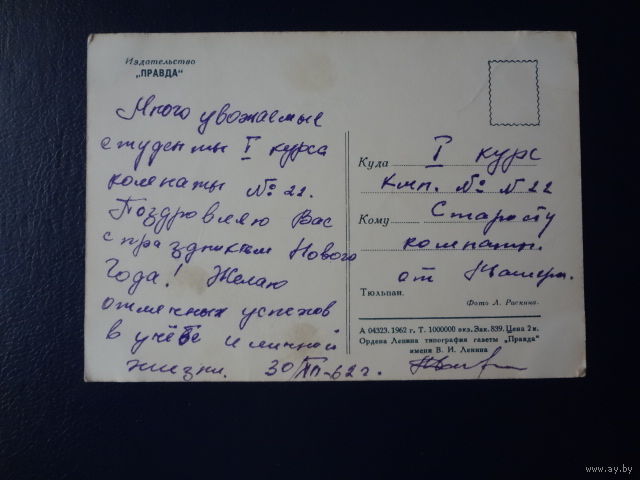 Издательство
„ПРАВДА“
Много уважаемые
студенты I курса
комнаты № 22.
Поздровляю Вас
с праздником Нового
Года! Желаю
отличных успехов
в учёбе и личной
жизни. 30/XII-62 г.
Куда I курс
кмп. № N 22
Кому Старосту
комнаты.
от
Тюльпан.
Фото Л. Раскина.
А 04323. 1962 г. Т. 1000000 экз. Зак. 839. Цена 2 к.
Ордена Ленина типография газеты „Правда“
имени В. И. Ленина
www.ay.by